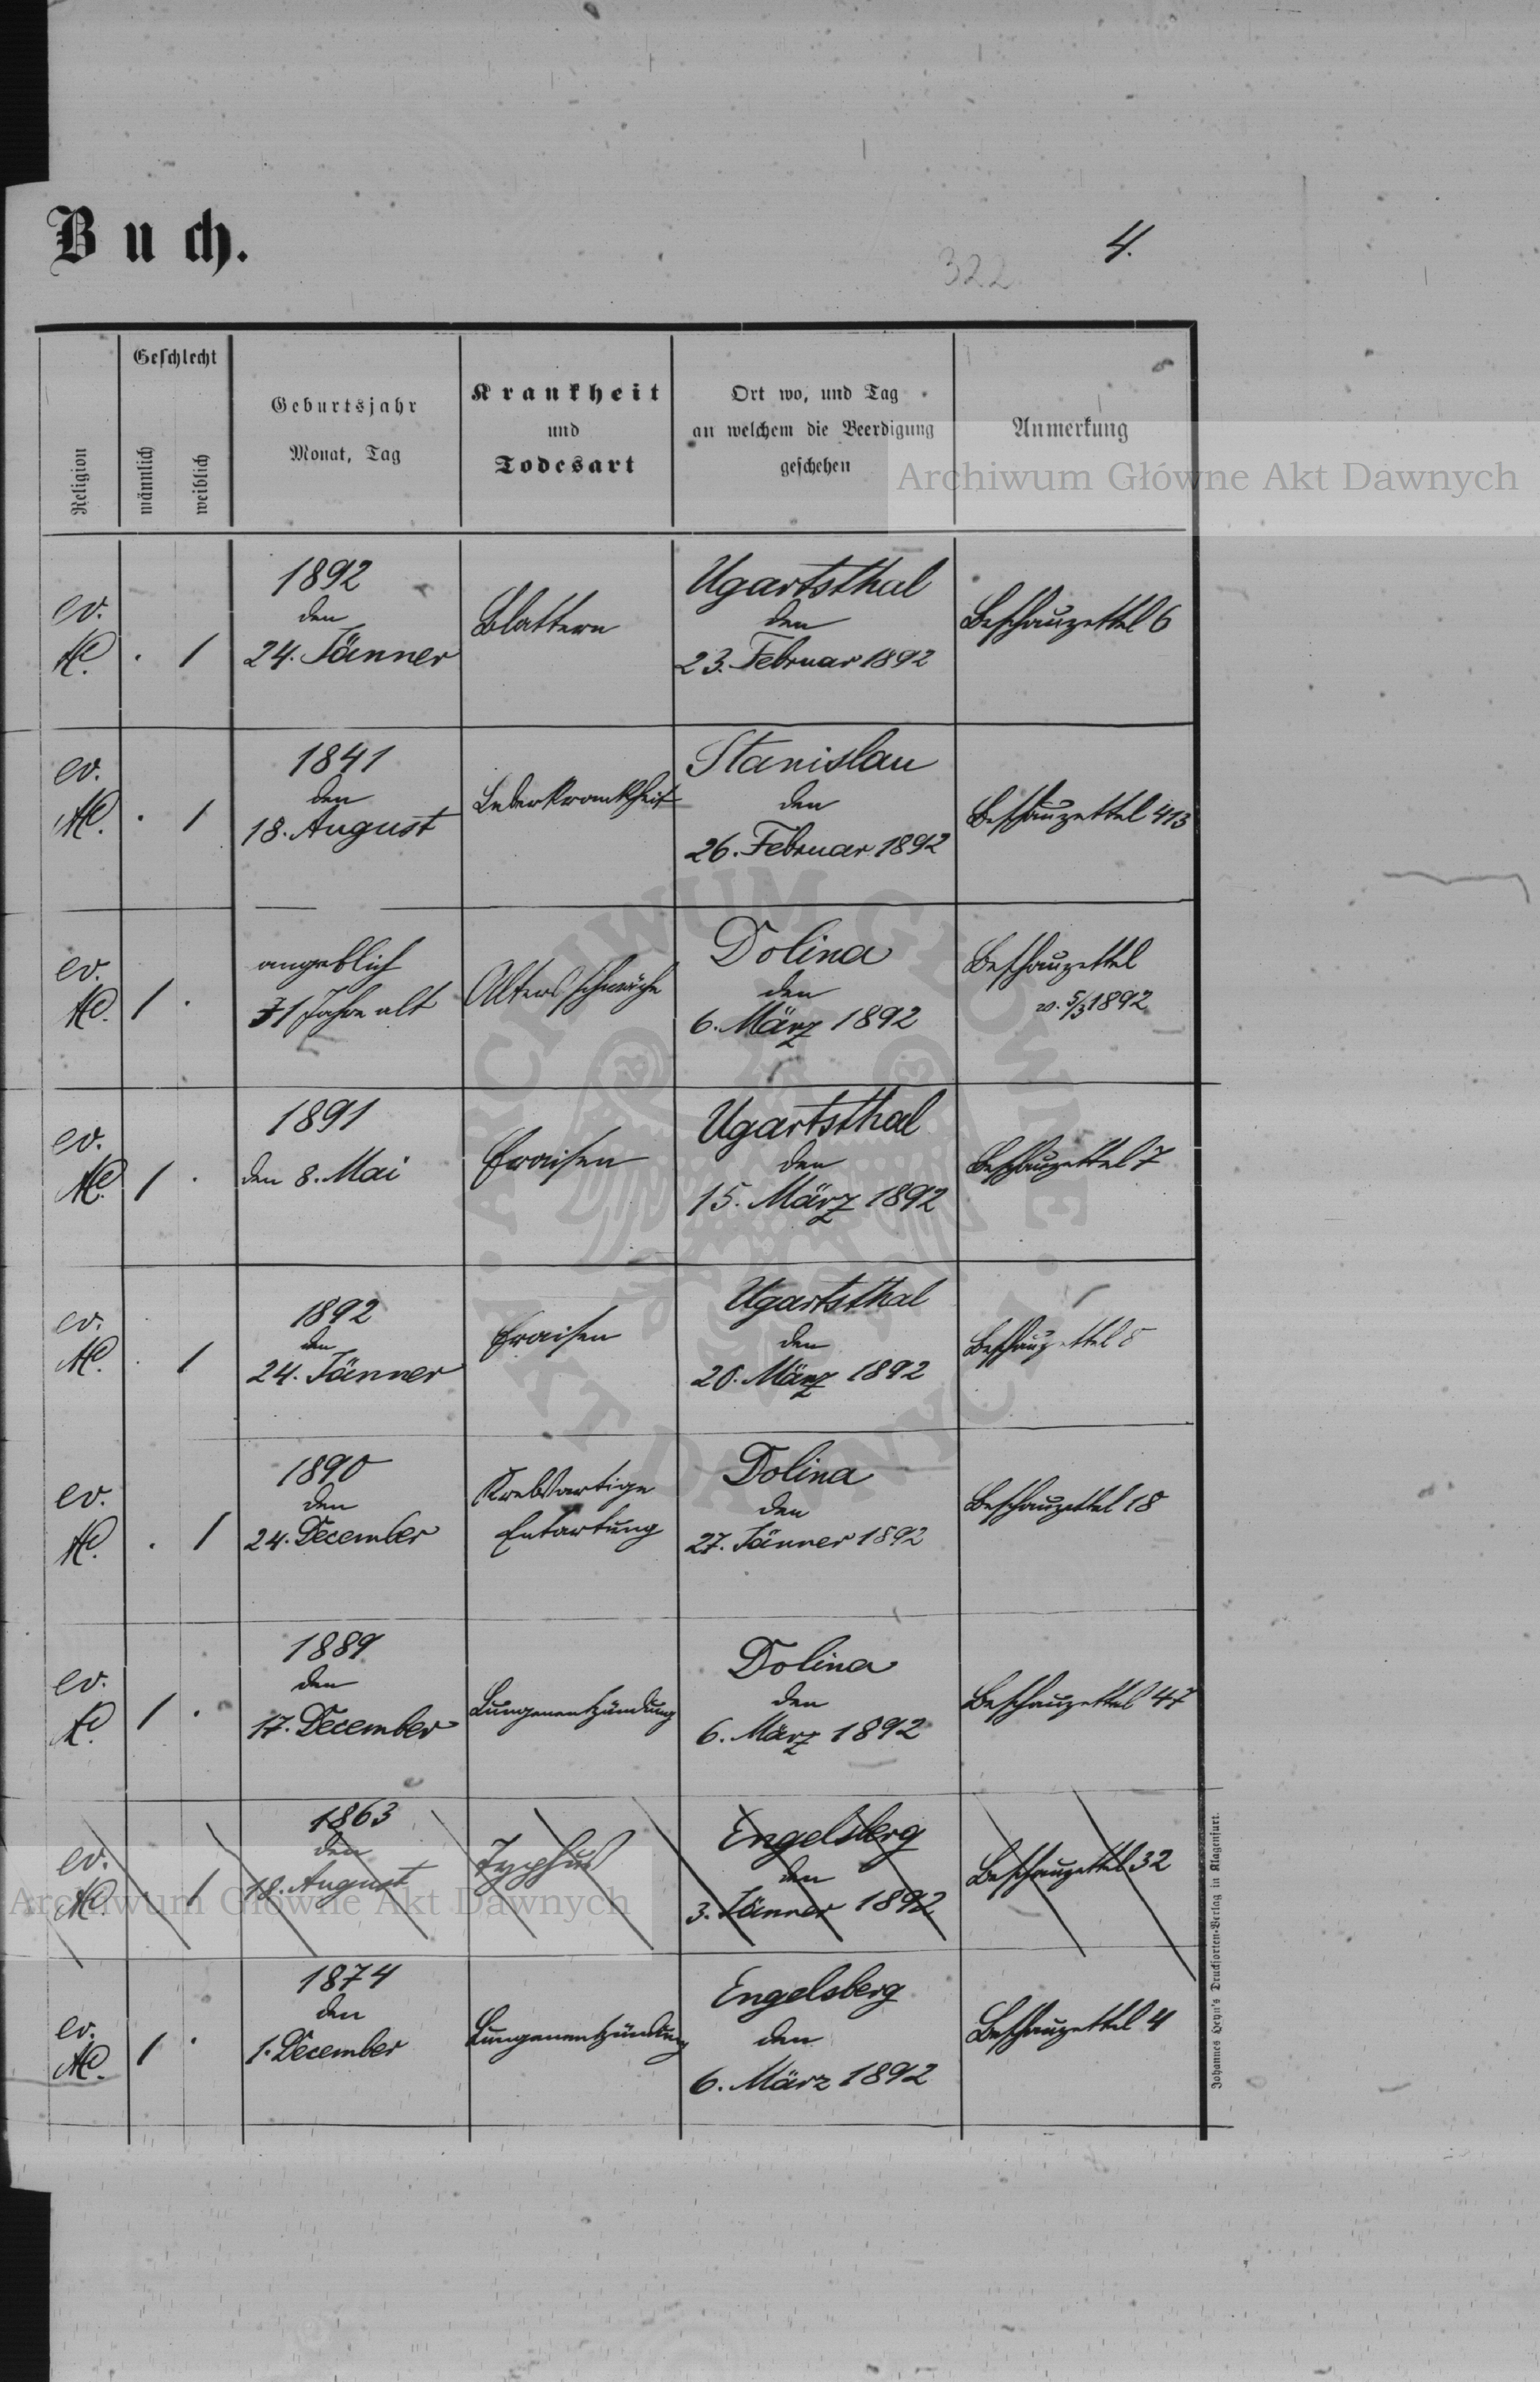 Buch.
4.
322
Religion
Geschlecht
männlich
weiblich
Geburtsjahr
Monat, Tag
Krankheit
und
Todesart
Ort wo, und Tag
an welchem die Beerdigung
geschehen
Anmerkung
Archiwum Główne Akt Dawnych
ev.
AC.
. 1
1892
den
24. Jänner
Blattern
Ugartsthal
den
23. Februar 1892
Beschauzettel 6
ev.
AC.
. 1
1841
den
18. August
Leberkrankheit
Stanislau
den
26. Februar 1892
Beschauzettel 413
ev.
AC.
1 .
angeblich
71 Jahre alt
Altersschwäche
Dolina
den
6. März 1892
Beschauzettel
v. 5/3 1892
ev.
AC.
1 .
1891
den 8. Mai
Fraisen
Ugartsthal
den
15. März 1892
Beschauzettel 7
ev.
AC.
. 1
1892
den
24. Jänner
Fraisen
Ugartsthal
den
20. März 1892
Beschauzettel 8
ev.
AC.
. 1
1890
den
24. December
Krebsartige
Entartung
Dolina
den
27. Jänner 1892
Beschauzettel 18
ev.
AC.
1 .
1889
den
17. December
Lungenentzündung
Dolina
den
6. März 1892
Beschauzettel 47
ev.
AC.
1
1863
den
18. August
Typhus
Engelsberg
den
3. Jänner 1892
Beschauzettel 32
Archiwum Główne Akt Dawnych
ev.
AC.
1 .
1874
den
1. December
Lungenentzündung
Engelsberg
den
6. März 1892
Beschauzettel 4
Johannes Heyn's Drucksorten-Verlag in Klagenfurt.
ARCHIWUM GŁÓWNE · AKT DAWNYCH ·